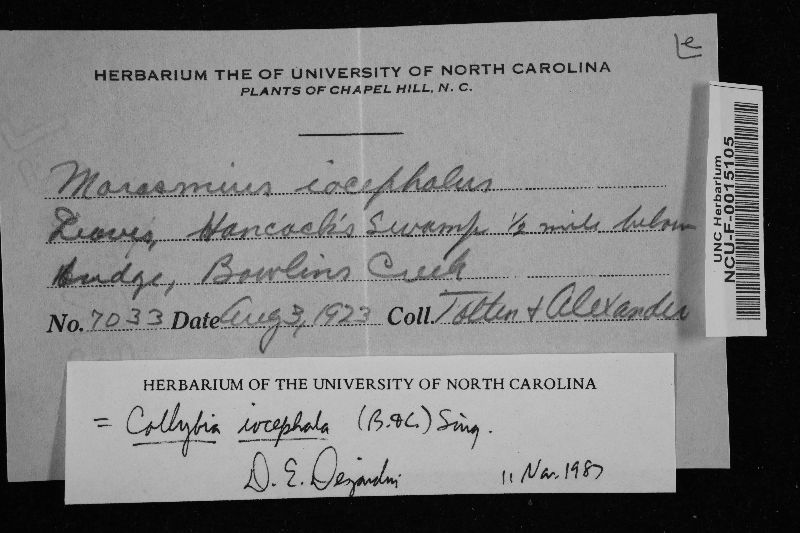 le
HERBARIUM THE OF UNIVERSITY OF NORTH CAROLINA
PLANTS OF CHAPEL HILL, N. C.
Marasmius iocephalus
Leaves, Hancock's Swamp ½ mile below
bridge, Bowlins Creek
No. 7033 Date Aug 3, 1923 Coll. Totten & Alexander
UNC Herbarium
NCU-F-0015105
HERBARIUM OF THE UNIVERSITY OF NORTH CAROLINA
= Collybia iocephala (B. & C.) Sing.
D. E. Desjardin 11 Mar. 1987